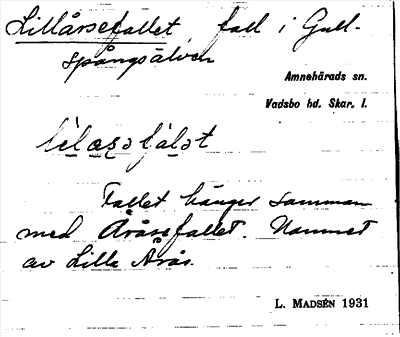 Lillåråsefallet, fall i Gull-
spångsälven
Amnehärads sn.
Vadsbo hd. Skar. l.
Fallet hänger samman
med Åråsefallet. Namnet
av Lilla Årås.
L. MADSÉN 1931